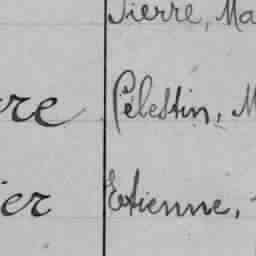 Pierre, Ma
re Célestin, M
ier Etienne,